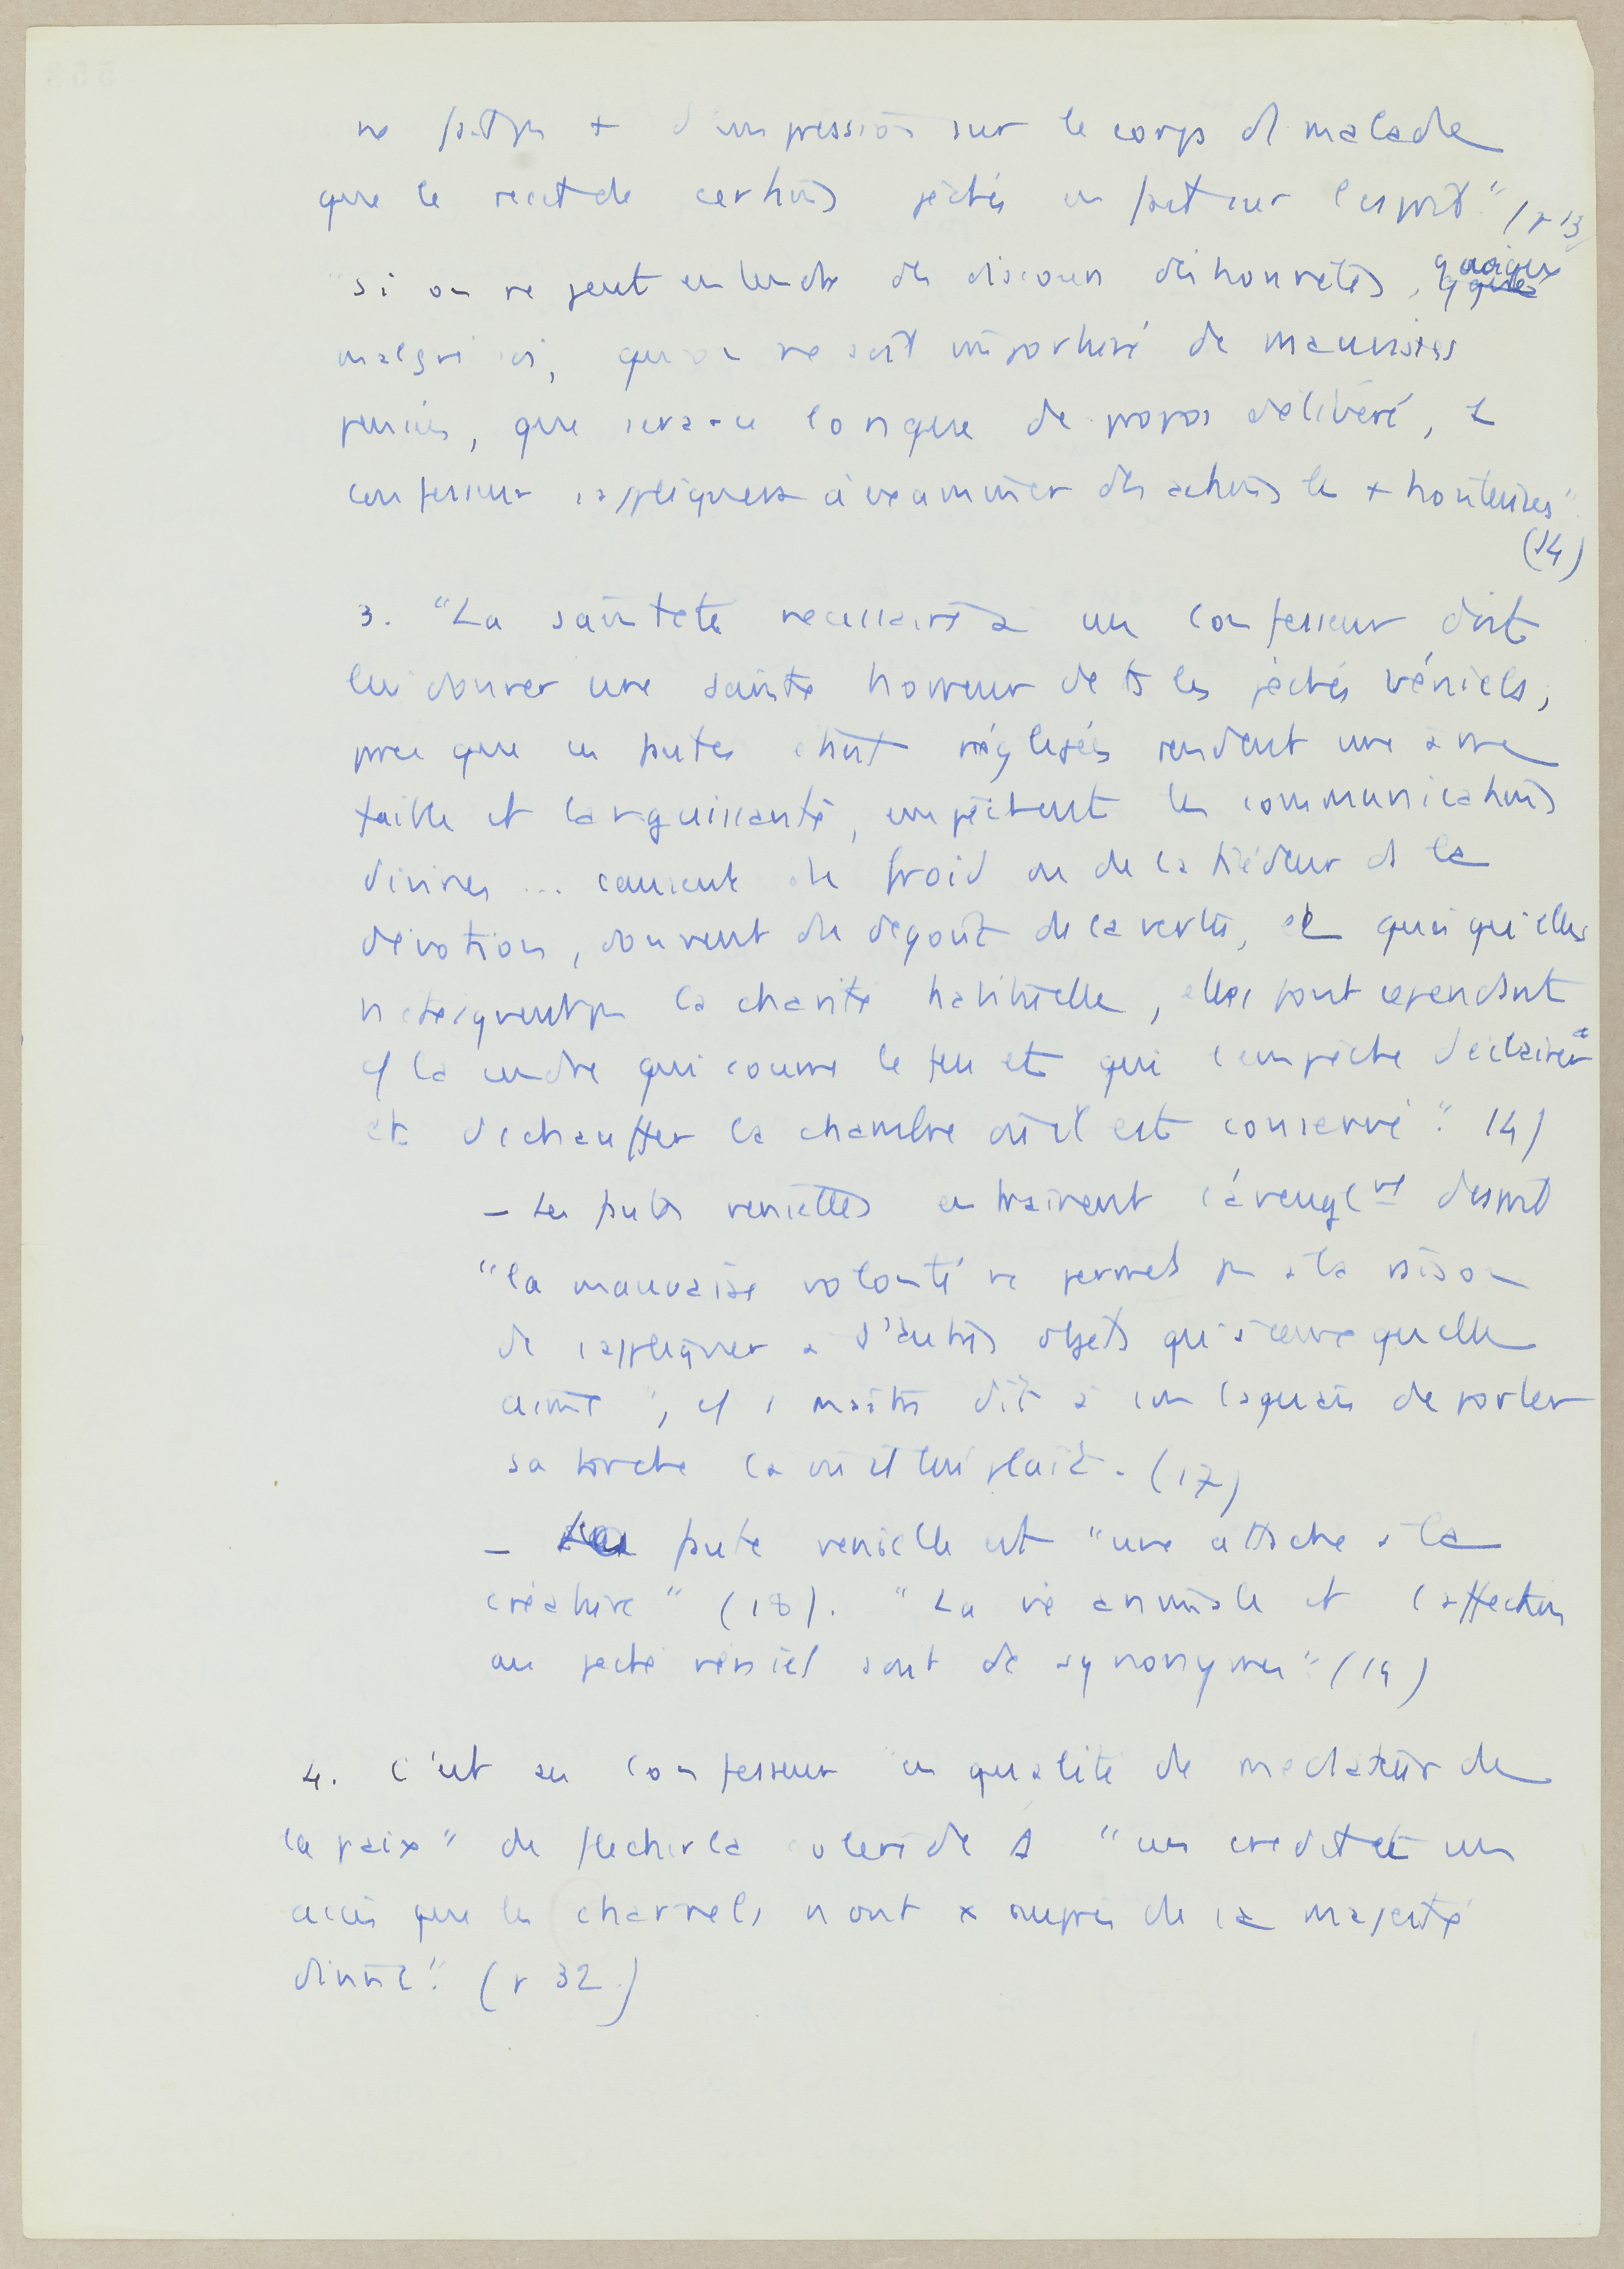 ne fait pas + d'impression sur le corps d malade
que le recit de certains péchés en fait sur l'esprit" (p 13
"si on ne peut entendre des discours deshonnetes, quoique
malgré soi, qu'on ne soit importuné de mauvaises
pensées, que sera-ce lorsque de propos délibéré, 1
confesseur s'appliquera à examiner des actions les + honteuses"
(14)
3. "La sainteté necessaire à un confesseur doit
lui donner une sainte horreur de ts les péchés véniels,
parce que ces fautes étant négligées rendent une ame
faible et languissante, empêchent les communications
divines ... causent du froid ou de la tiédeur ds la
dévotion, donnent du dégout de la vertu, et quoiqu'elles
n'éteignent pas la charité habituelle, elles sont cependant
cf la cendre qui couvre le feu et qui l'empêche d'eclairer
et d'echauffer la chambre où il est conservé". 14)
- Les fautes venielles entrainent l'aveuglmt d'esprit
"la mauvaise volonté ne permet pas à la raison
de s'appliquer à d'autres objets qu'à ceux qu'elle
aime", cf 1 maitre dit à son laquais de porter
sa torche là où il lui plait. (17)
- La faute venielle est "une attache à la
créature" (18). "La vie animale et l'affection
au peché véniel sont des synonymes" (19)
4. C'est au confesseur en qualité de mediateur de
la paix" de flechir la colere de D "un credit et un
accès que les charnels n'ont x auprès de la majesté
divine". (p 32)